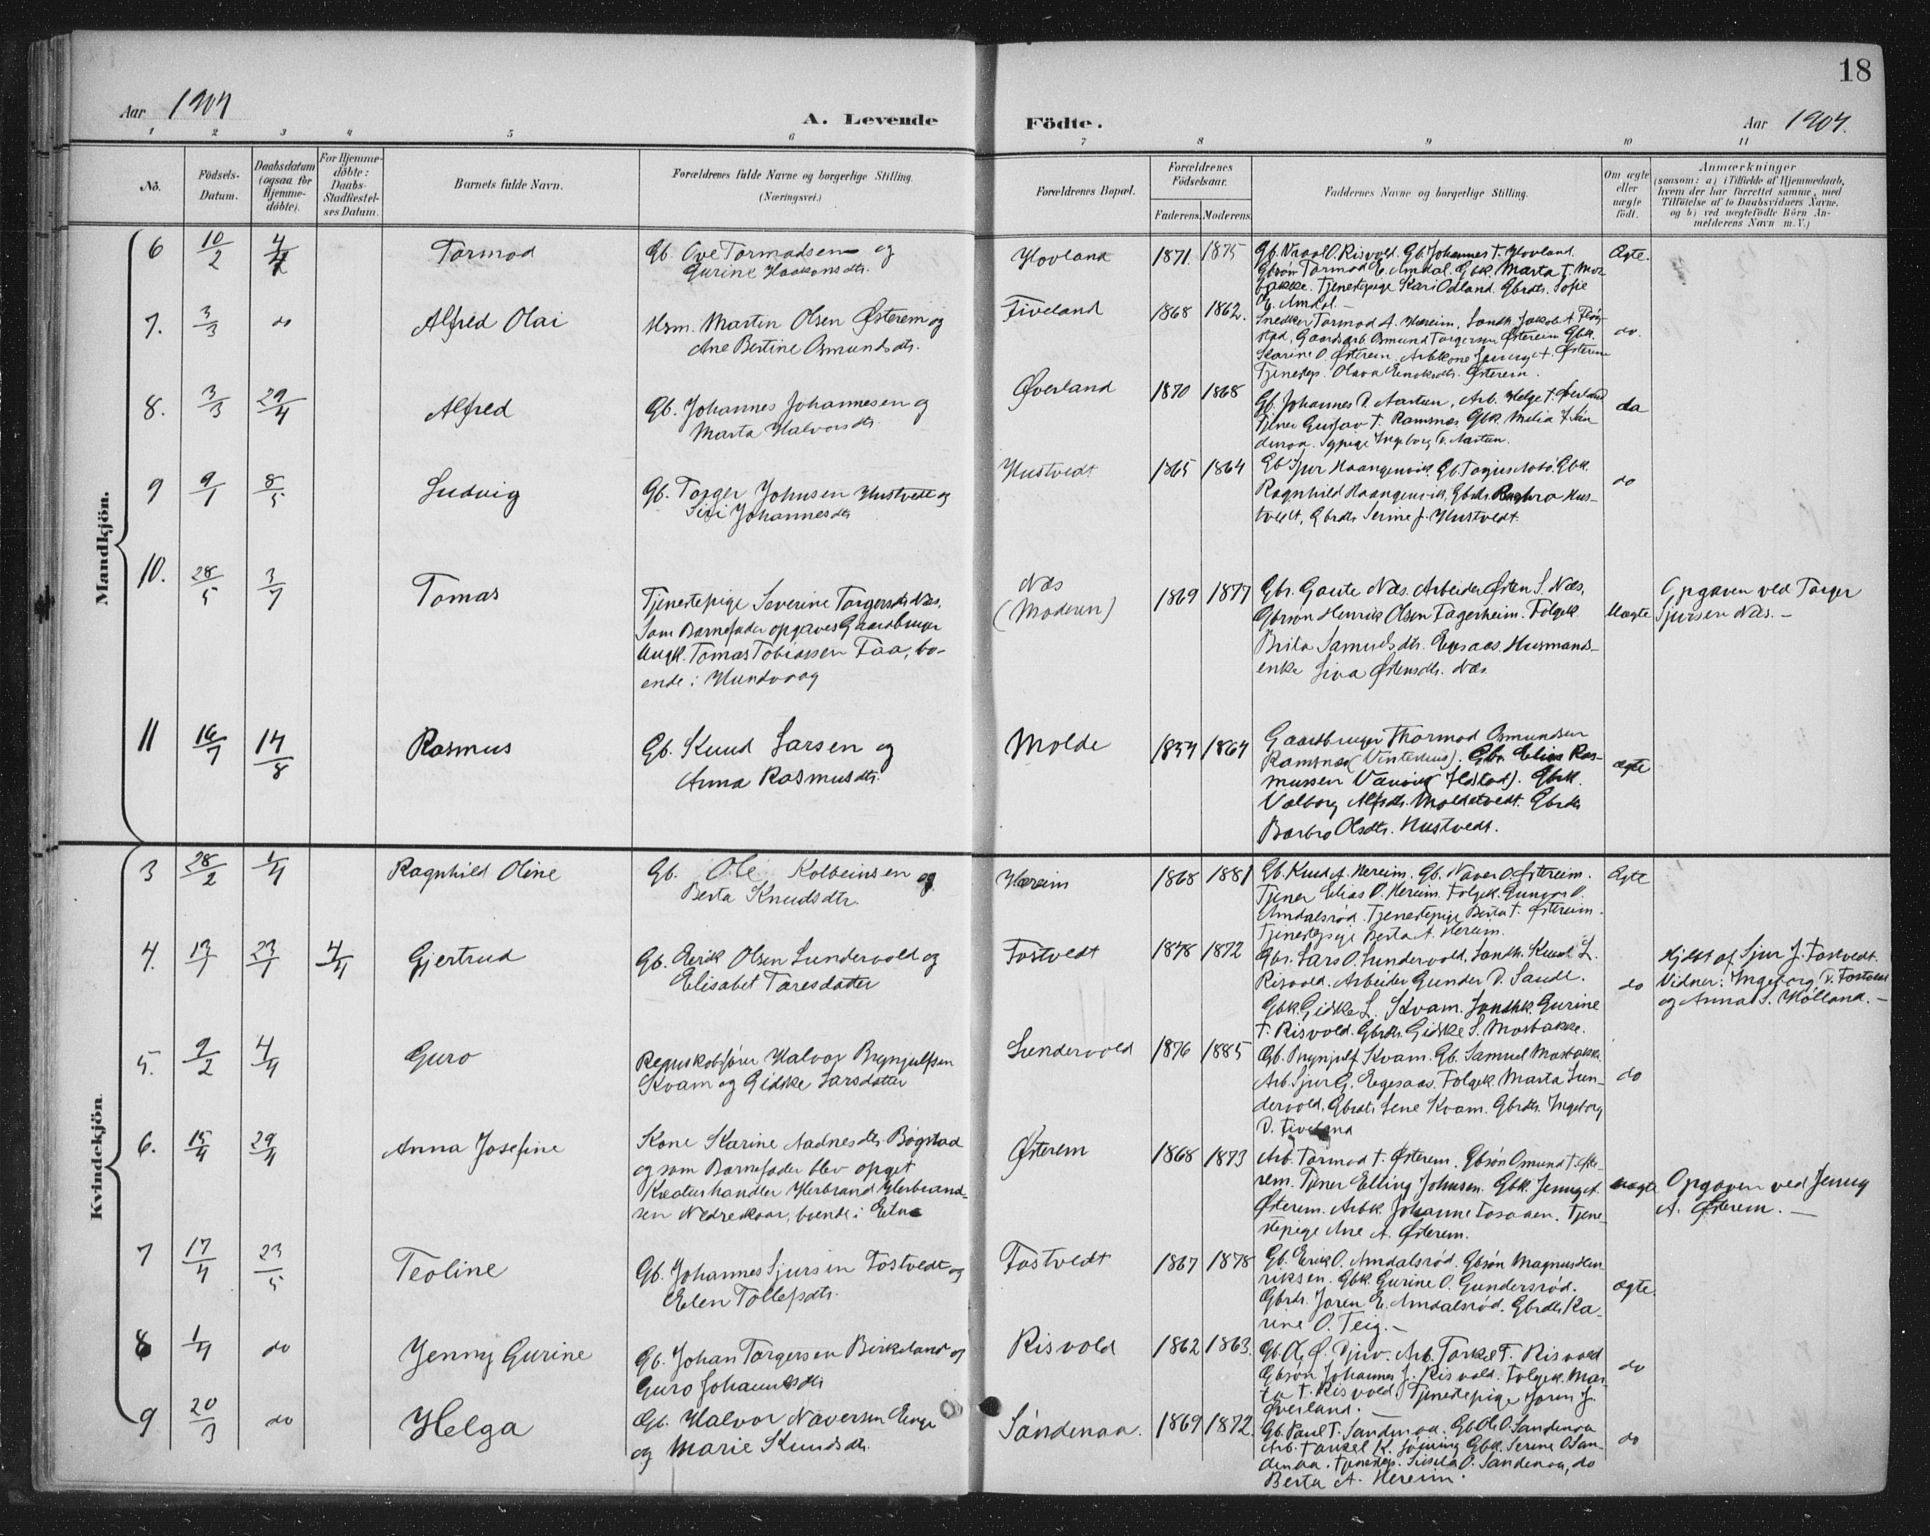 18
Aar 1904
A. Levende
Födte.
Aar 1904.
1 2 3 4 5 6 7 8 9 10 11
No.
Födsels-Datum.
Daabsdatum (ogsaa for Hjemme-döbte).
For Hjemme-döbte: Daabs-Stadfæstel-ses Datum.
Barnets fulde Navn.
Forældrenes fulde Navne og borgerlige Stilling.
(Næringsvei.)
Forældrenes Bopæl.
Forældrenes Födselsaar.
Faderens. Moderens.
Faddernes Navne og borgerlige Stilling.
Om ægte eller uægte födt.
Anmærkninger
(saasom: a) i Tilfælde af Hjemmedaab,
hvem der har forrettet samme, med
Tilföielse af to Daabsvidners Navne.
og b) ved uægtefödte Börn An-
melderens Navn m. V.)
Mandkjön.
6 10/2 4/4 Tormod
Gb. Ove Tormodsen og
Gurine Haakonsdtr.
Hovland 1871. 1875
Gb. Vraal O. Risvold. Gb. Johannes T. Hovland.
Gbrsön Tormod E. Amdal. Gbk. Marta T. Mos-
bakke. Tjenestepige Kari Odland. Gbrdtr. Sofie
E. Amdal. –
Ægte.
7. 3/3 do Alfred Olai
Hsm. Martin Olsen Østerem og
Ane Bertine Osmundsdtr.
Fiveland 1868 1862.
Snedker Tormod A. Hæreim, Landh. Jakob A.
stad, Gaardsarb. Osmund Torgersen Østerem Gbk.
Karine O. Østerem, Arbkone Jenny A. Østerem
Tjenestep. Olava Enoksdtr. Østerem.
do.
8. 3/3 29/4 Alfred
Gb. Johannes Johannesen og
Marta Halvorsdtr.
Øverland 1870 1868
Gb. Johannes D. Aartun, Arb. Helge T. Øverland
Tjener Gustav T. Ramsnes Gbk. Melia T. Sön-
denaa. Sypige Ingeborg T. Aartun.
do
9 9/1 8/5 Ludvig
Gb. Torger Johnsen Hustvedt og
Siri Johannesdtr
Hustvedt 1865 1864
Gb. Sjur Haangensvik. Gb. Gbk.
Ragnhild Haangensvik, Gbrdtr. Barbro Hus-
tvedt, Gbrdtr. Serine J. Hustvedt.
do
10. 28/5 3/7 Tomas
Tjenestepige Severine Torgersdtr. Næs,
Som Barnefader opgaves Gaardbruger
Ungk. Tomas Tobiassen Faa, bo-
ende i Hundvaag
Næs
(Moderen)
1869 1877
Gbr. Gaute Næs. Arbeider Østen S. Næs,
Gbrsön Henrik Olsen Fagerheim. Folgek.
Brita Samuelsdtr. Egesaas. Husmands-
enke Siva Østensdtr. Næs
Uægte
Opgaven ved Torger
Sjursen Næs. –
11 16/7 14/8 Rasmus
Gb. Knud Larsen og
Anna Rasmusdtr.
Molde 1854 1864
Gaardbruger Thormod Osmundsen
Ramsnes (Vinterhus). Gbr. Elias Ras-
mussen Vaavik (Holstad). Gbrk.
Valborg Alfsdtr. Moldetvedt. Gbrdtr
Barbro Olsdtr. Hustvedt.
ægte
Kvindekjön.
3 28/2 1/4 Ragnhild Oline
Gb. Ole Kolbeinsen og
Berta Knudsdtr.
Hæreim 1868 1881
Gb. Knud A. Hereim. Gb. Naver O. Østereim.
Tjener Elias O. Hereim. Folgek. Gunvor O.
Amdalsrød. Tjenestepige Berta T. Østereim.
Tjenestepige Berta A. Hereim.
Ægte
4. 13/1 23/1 4/4 Gjertrud
Gb. Eirik Olsen Sundervold og
Elisabet Taresdatter
Fostvedt 1878 1872
Gbr. Lars O. Sundervold, Landh. Knud L.
Risvold. Arbeider Gunder D. Saudl.
Gbk. Gidske L. Kvam. Landhk. Gurine
T. Risvold. Gbrdtr. Gidske S. Mosbakke.
do
Hjdbt af Sjur J. Fostvedt.
Vidner: Ingeborg T. Fostvedt
og Anna S. Hölland. –
5. 9/2 4/4 Guro
Regnskobsförer Halvor Brynjulfsen
Kvam og Gidske Larsdatter
Sundervold 1876 1885
Gb. Brynjulf Kvam. Gb. Samuel Mosbakke
Arb. Sjur G. Egesaas. Folgek. Marta Sun-
dervold, Gbrdtr. Lene Kvam. Gbrdtr. Ingeborg
D. Fiveland
do
6. 15/4 29/4 Anna Josefine
Kone Karine Aadnesdtr. Bögstad
og som Barnefader blev opget
Kreaturhandler Herbrand Herbrand-
sen Nedrevaag, boende i Etne
Østerem 1868 1873
Arb. Tormod T. Østerem. Gbsön Osmund T. Øste-
rem. Tjener Elling Johnsen. Gbk. Jenny A.
Østerem. Arbk. Johanne Fosaaen. Tjene-
stepige Ane A. Østerem.
uægte
Opgaven ved Jenny
A. Østerem. –
7 17/4 23/5 Teoline
Gb. Johannes Sjursen Fostvedt og
Elen Tollefsdtr.
Fostvedt 1867 1878
Gb. Erik O. Amdalsrød. Gbsön Magnus Hen-
riksen. Gbk. Gurine O. Gundersrød.
Gbrdtr. Joren E. Amdalsrød. Gbrdtr. Ka-
rine O. Teig. –
ægte.
8 1/4 do Jenny Gurine
Gb. Johan Torgersen Birkeland og
Guro Johannesdtr
Risvold 1862 1863.
Gb. Djuv. Arb. Torkel T. Risvold
Gbsön Johannes J. Risvold. Folgek. Mar-
ta T. Risvold. Tjenestepige Joren J.
Øverland. –
do
9 20/3 do Helga
Gb. Halvor Naversen Enge
og Marie Knudsdtr.
Söndenaa. 1869 1872.
Gb. Paul T. Sandenaa. Gb. Ole O. Sandenaa
Arb. Torkel K. Gbk. Serine O. San-
denaa. Tjenestep. Sissela O. Sandenaa, do
Berta A. Hereim.
do